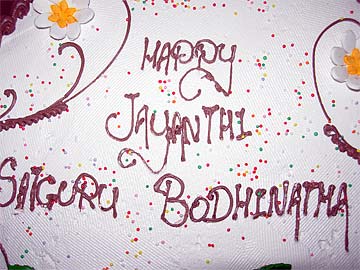 HAPPY
JAYANTHI
SATGURU BODHINATHA